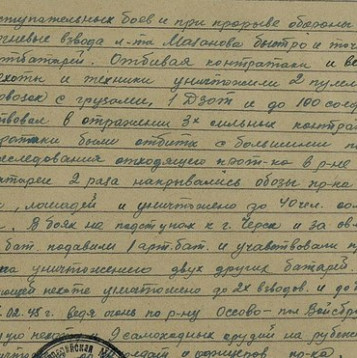 ступательных боев и при прорыве обороны
огневые взвода л-та Мазанова быстро и точ
артбатарей. Отбивая контратаки и ве
ехоты и техники уничтожили 2 пулем
овозок с грузами, 1 Дзот и до 100 солд
ствовал в отражении 3х сильных контра
ратаки были отбиты с большими по
еследования отходящего прот-ка в р-не
тареи 2 раза накрывались обозы пр-ка
лошадей и уничтожено до 40 чел. сол
В боях на подступах к г. Черск и за овл
бат. подавили 1 арт. бат. и участвовали п
на уничтожению двух других батарей.
ющей пехоте уничтожено до 2х взводов и до
.02.45 г. ведя огонь по р-ну Оссово-
пехоты и 9 самоходных орудий на рубеже
солдат и офицеров пр-ка.